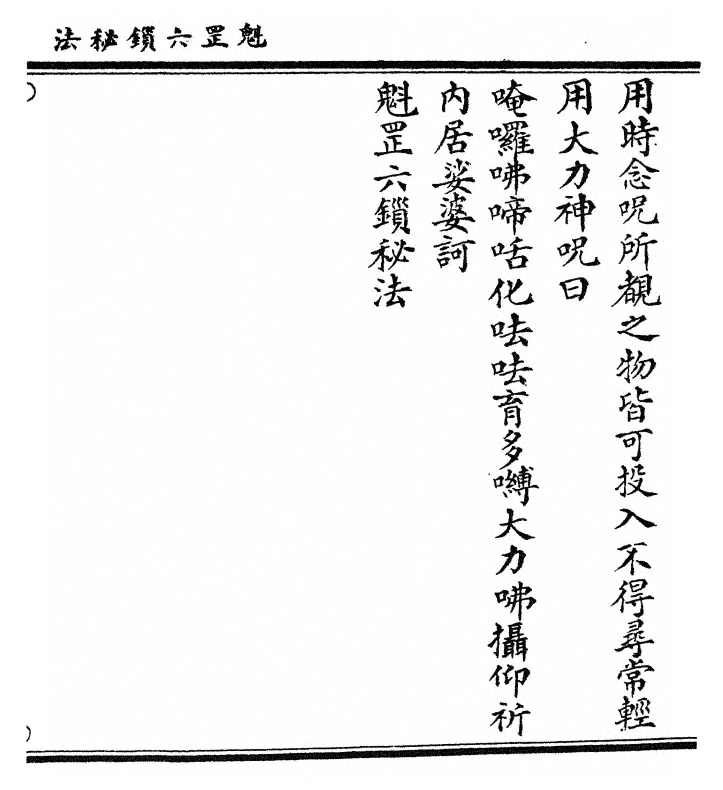 魁罡六鎖秘法
用時念呪所覩之物皆可投入不得尋常輕
用大力神呪曰
唵囉咈啼咶化呿呿育多嚩大力咈攝仰祈
內居娑婆訶
魁罡六鎖秘法